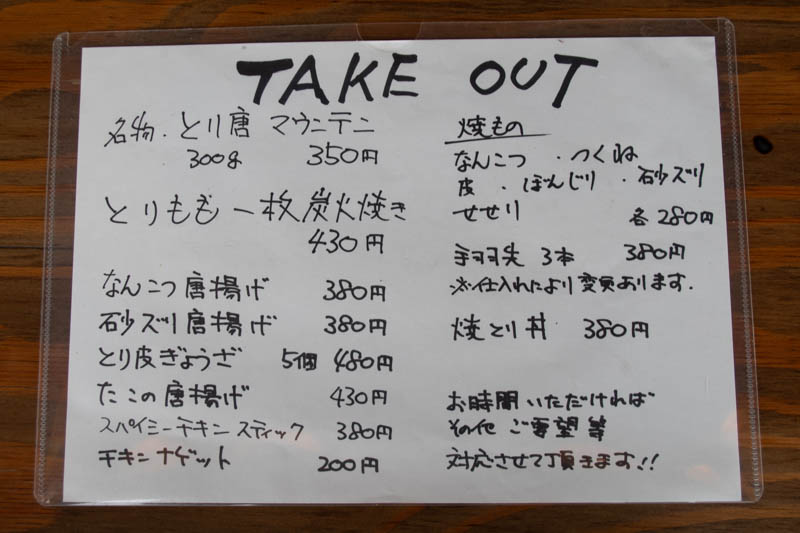 TAKE OUT
名物.とり唐 マウンテン
300g 350円
とりもも一枚炭火焼き
430円
なんこつ唐揚げ 380円
砂ズリ唐揚げ 380円
とり皮ぎょうざ 5個 480円
たこの唐揚げ 430円
スパイシーチキンスティック 380円
チキンナゲット 200円
焼もの
なんこつ ・つくね
皮 ・ぼんじり ・砂ズリ
せせり 各280円
手羽先 3本 380円
※仕入れにより変更あります.
焼とり丼 380円
お時間いただければ
その他 ご要望等
対応させて頂きます!!